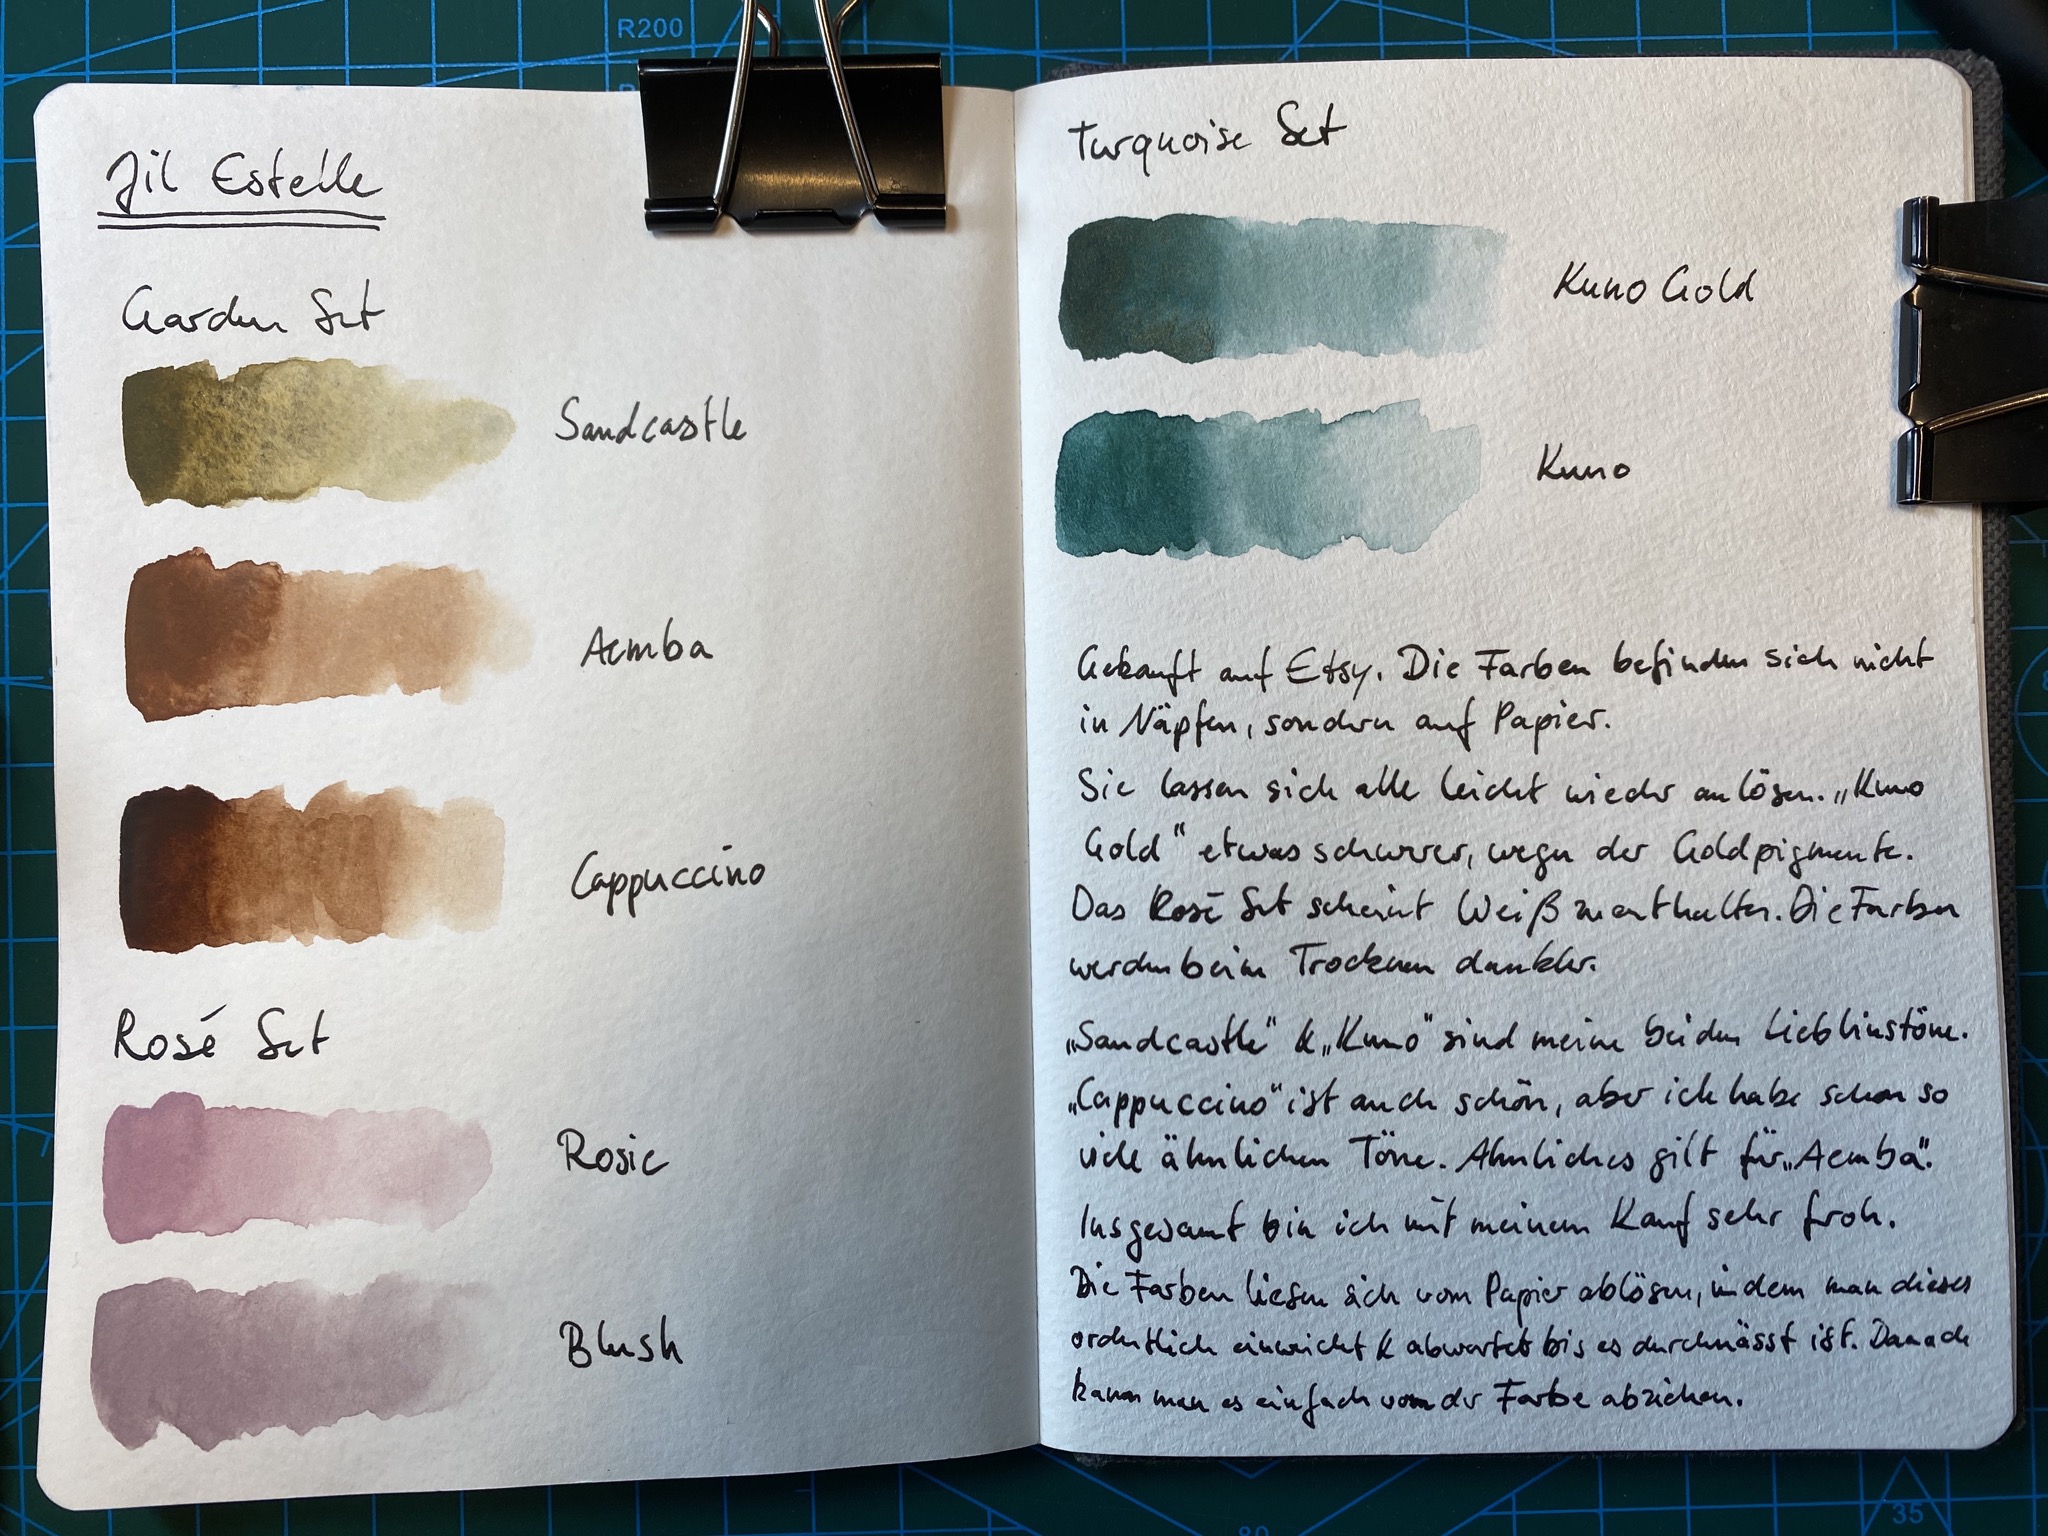 R200
Jil Estelle
Garden Set
Sandcastle
Aemba
Cappuccino
Rosé Set
Rosie
Blush
Turquoise Set
Kuno Gold
Kuno
Gekauft auf Etsy. Die Farben befinden sich nicht
in Näpfen, sondern auf Papier.
Sie lassen sich alle leicht wieder anlösen. „Kuno
Gold“ etwas schwerer, wegen der Goldpigmente.
Das Rosé Set scheint Weiß zu enthalten. Die Farben
werden beim Trocknen dunkler.
„Sandcastle“ & „Kuno“ sind meine beiden Lieblinstöne.
„Cappuccino“ ist auch schön, aber ich habe schon so
viele ähnlichen Töne. Ähnliches gilt für „Aemba“.
Insgesamt bin ich mit meinem Kauf sehr froh.
Die Farben liesen sich vom Papier ablösen, indem man dieses
ordentlich einweicht & abwartet bis es durchnässt ist. Danach
kann man es einfach von der Farbe abziehen.
35
80